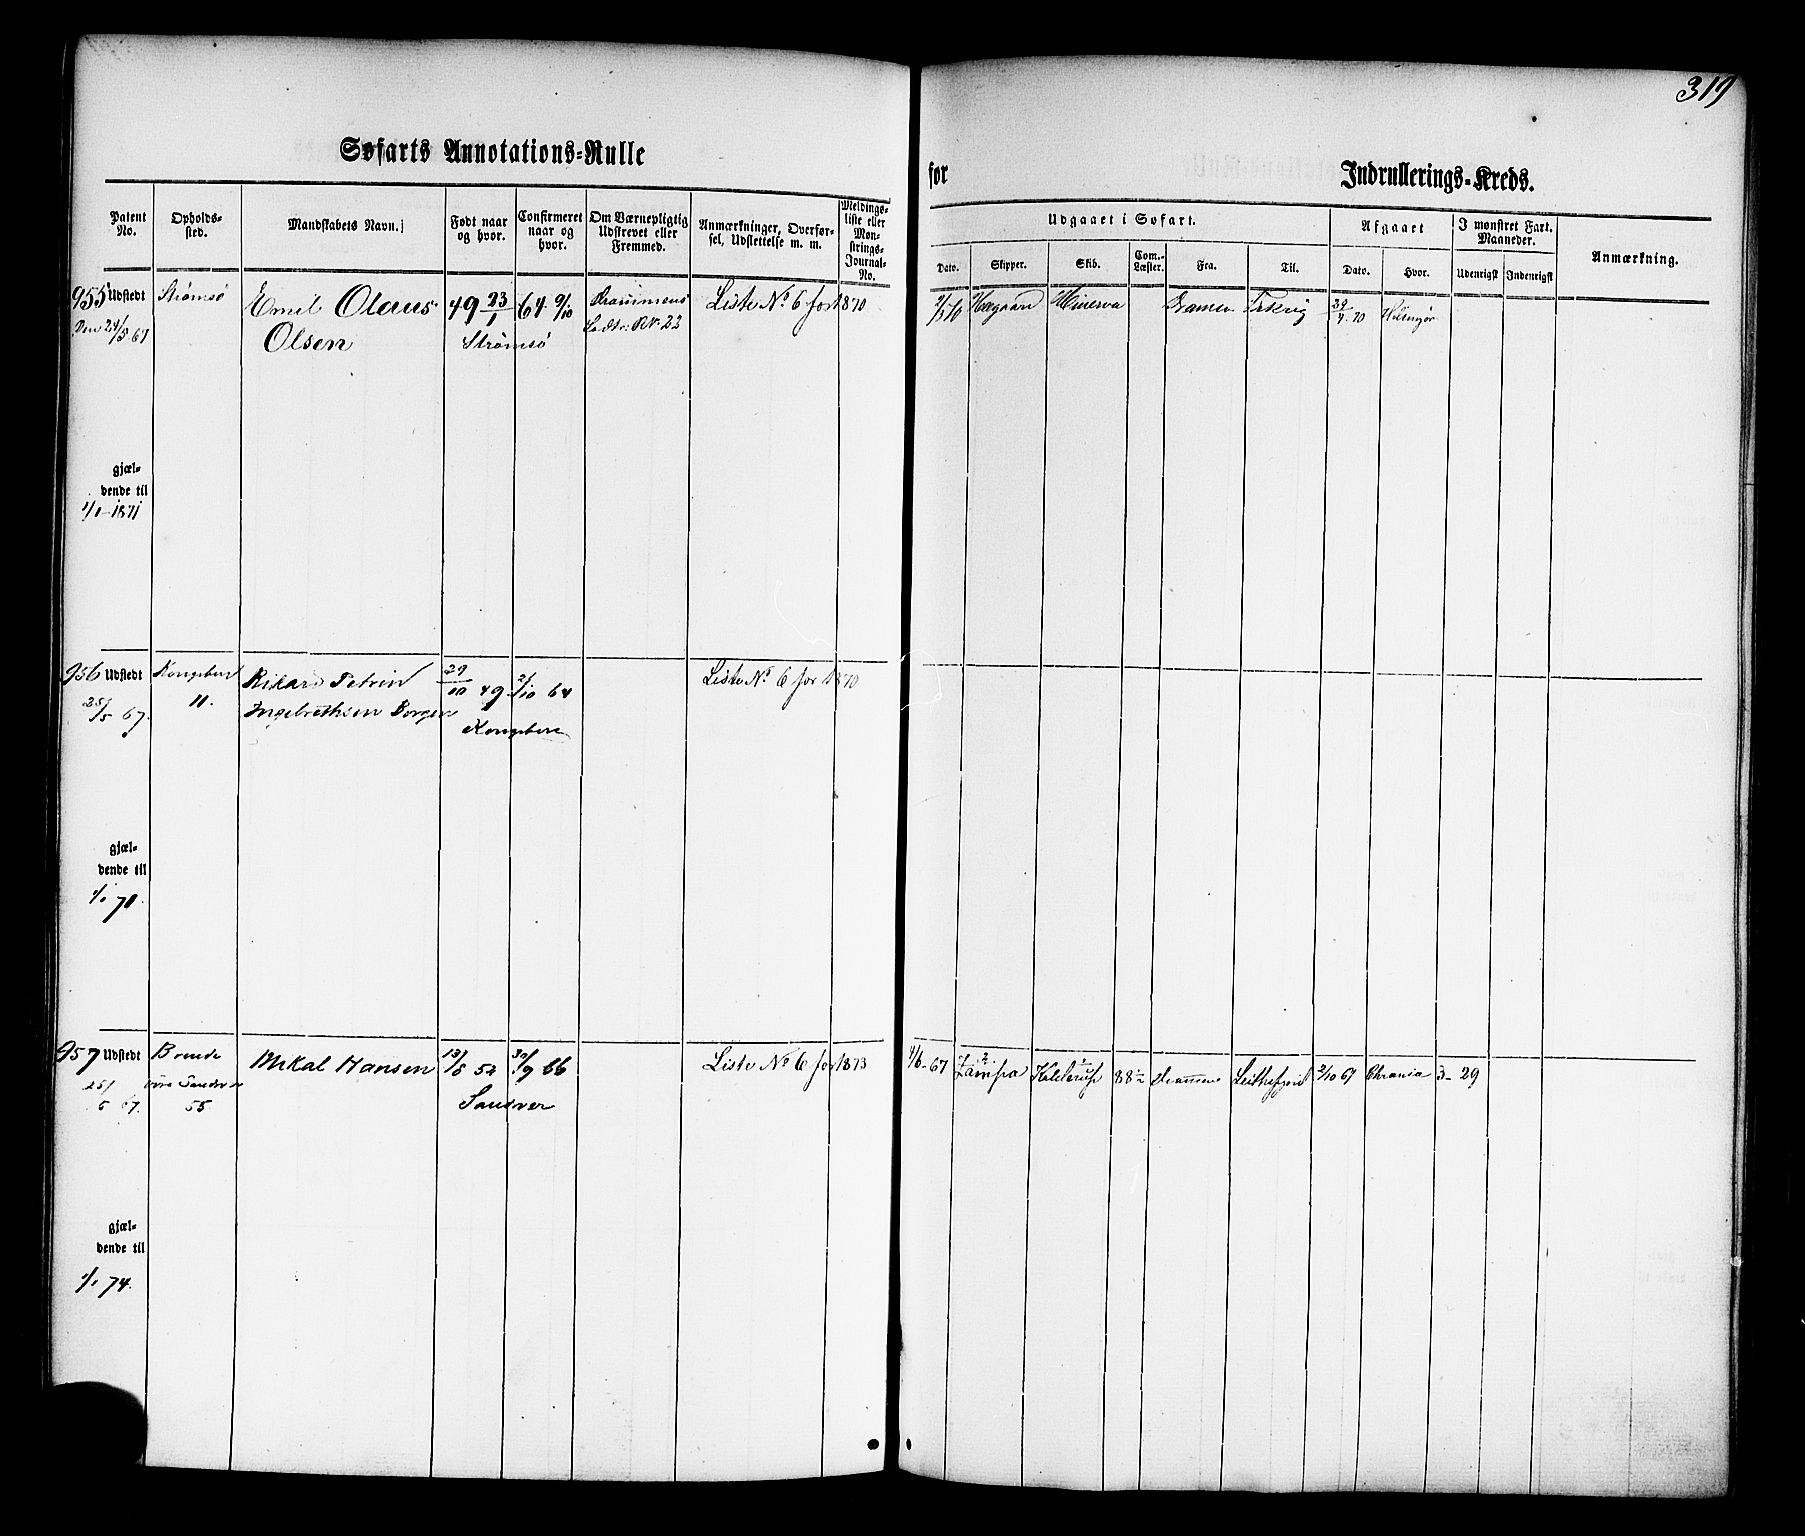 319
Søfarts Annotations-Rulle
for Indrullerings-Kreds.
Patent No.
Opholds-sted.
Mandskabets Navn.
Født naar og hvor.
Confirmeret naar og hvor.
Om Værnepligtig Udskrevet eller Fremmed.
Anmærkninger, Overførsel, Udslettelse m. m.
Meldings-liste eller Mønstrings-Journal-No.
Udgaaet i Søfart.
Afgaaet
I mønstret Fart. Maaneder.
Anmærkning.
Dato. Skipper. Skib. Com.-Læster. Fra. Til. Dato. Hvor. Udenrigsk Indenrigsk
955 Udstedt Strømsø Emil Olaus 49 23/1 64 9/10 Liste No 6 for 1870 Minerva 29/7 70
Den 24/5 67 Olsen Strømsø
gjæl-
dende til
1/1-1871
956 Udstedt Kongsberg Rikard Petrin 29/10 49 2/10 64 Liste No 6 for 1870
25/5 67. 11. Ingebrethsen Borgen
Kongsberg
gjæl-
dende til
1/1 70.
957 Udstedt Mikal Hansen 13/5 52 30/9 66 Liste No 6 for 1873 1/6-67 88 1/2 2/10 67 Chrania 3-29
25/5 67. 55 Sandsver
gjæl-
dende til
1/1 74.